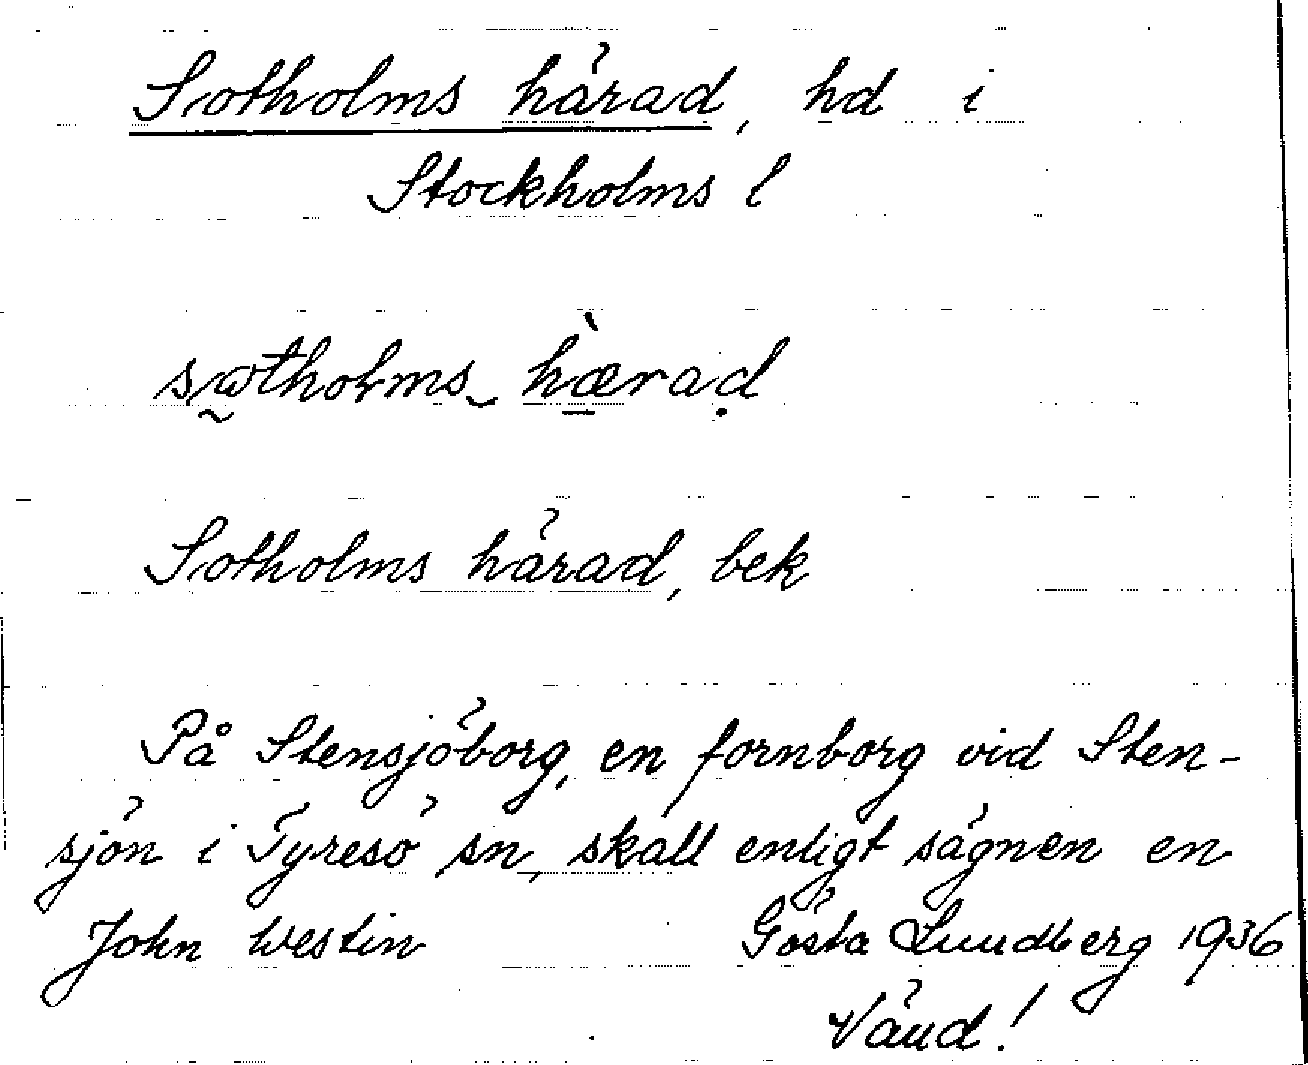 Sotholms härad, hd i
Stockholms l
sωtholms hærad
Sotholms härad, bek
På Stensjöborg, en fornborg vid Sten-
sjön i Tyresö sn, skall enligt sägnen en
John Westin Gösta Lundberg 1936
Vänd!